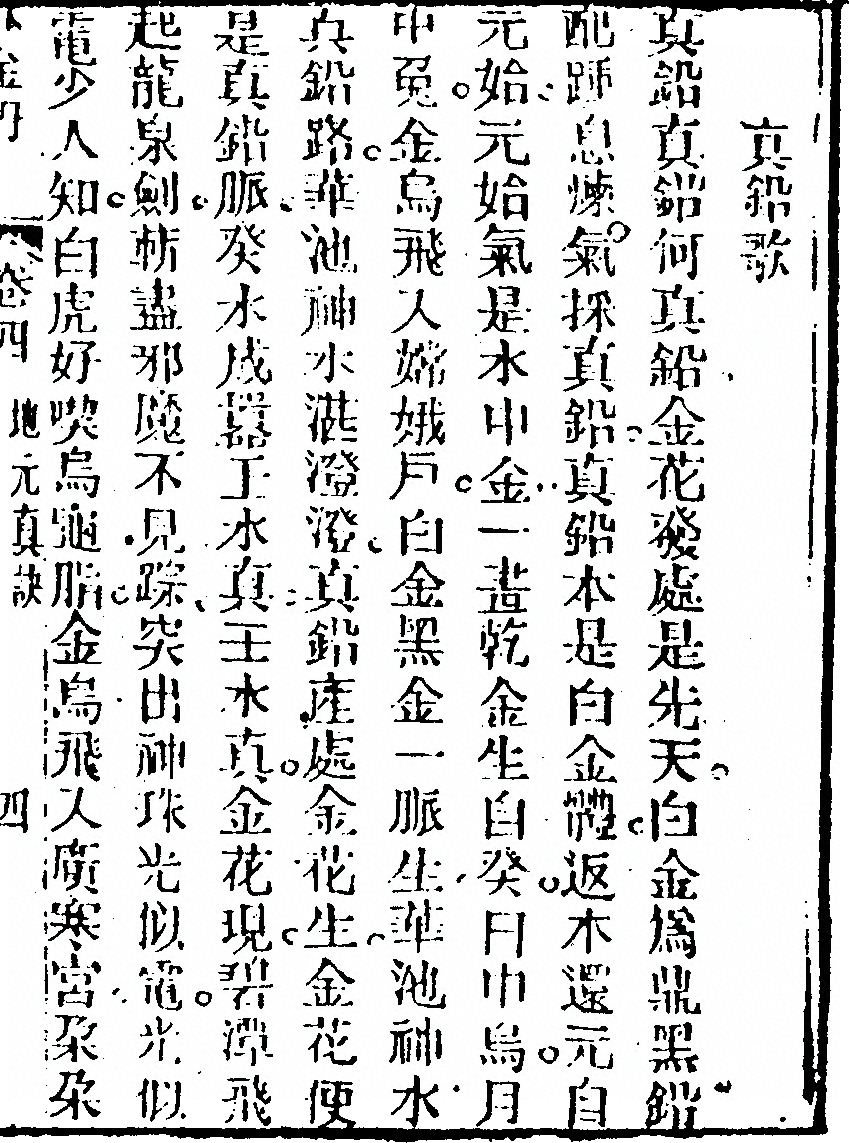 真鉛歌
真鉛真鉛何真鉛金花發處是先天白金爲鼎黑鉛
配踵息煉氣採真鉛真鉛本是白金體返本還元自
元始元始氣是水中金一畫乾金生自癸日中烏月
中兔金烏飛入嫦娥戶白金黑金一脈生華池神水
真鉛路華池神水湛澄澄真鉛產處金花生金花便
是真鉛脈癸水成嚣壬水真壬水真金花現碧潭飛
起龍泉劍斬盡邪魔不見踪突出神珠光似電光似
電少人知白虎好喫烏龜脂金烏飛入廣寒宮朶朶
卷四
地元真訣
四